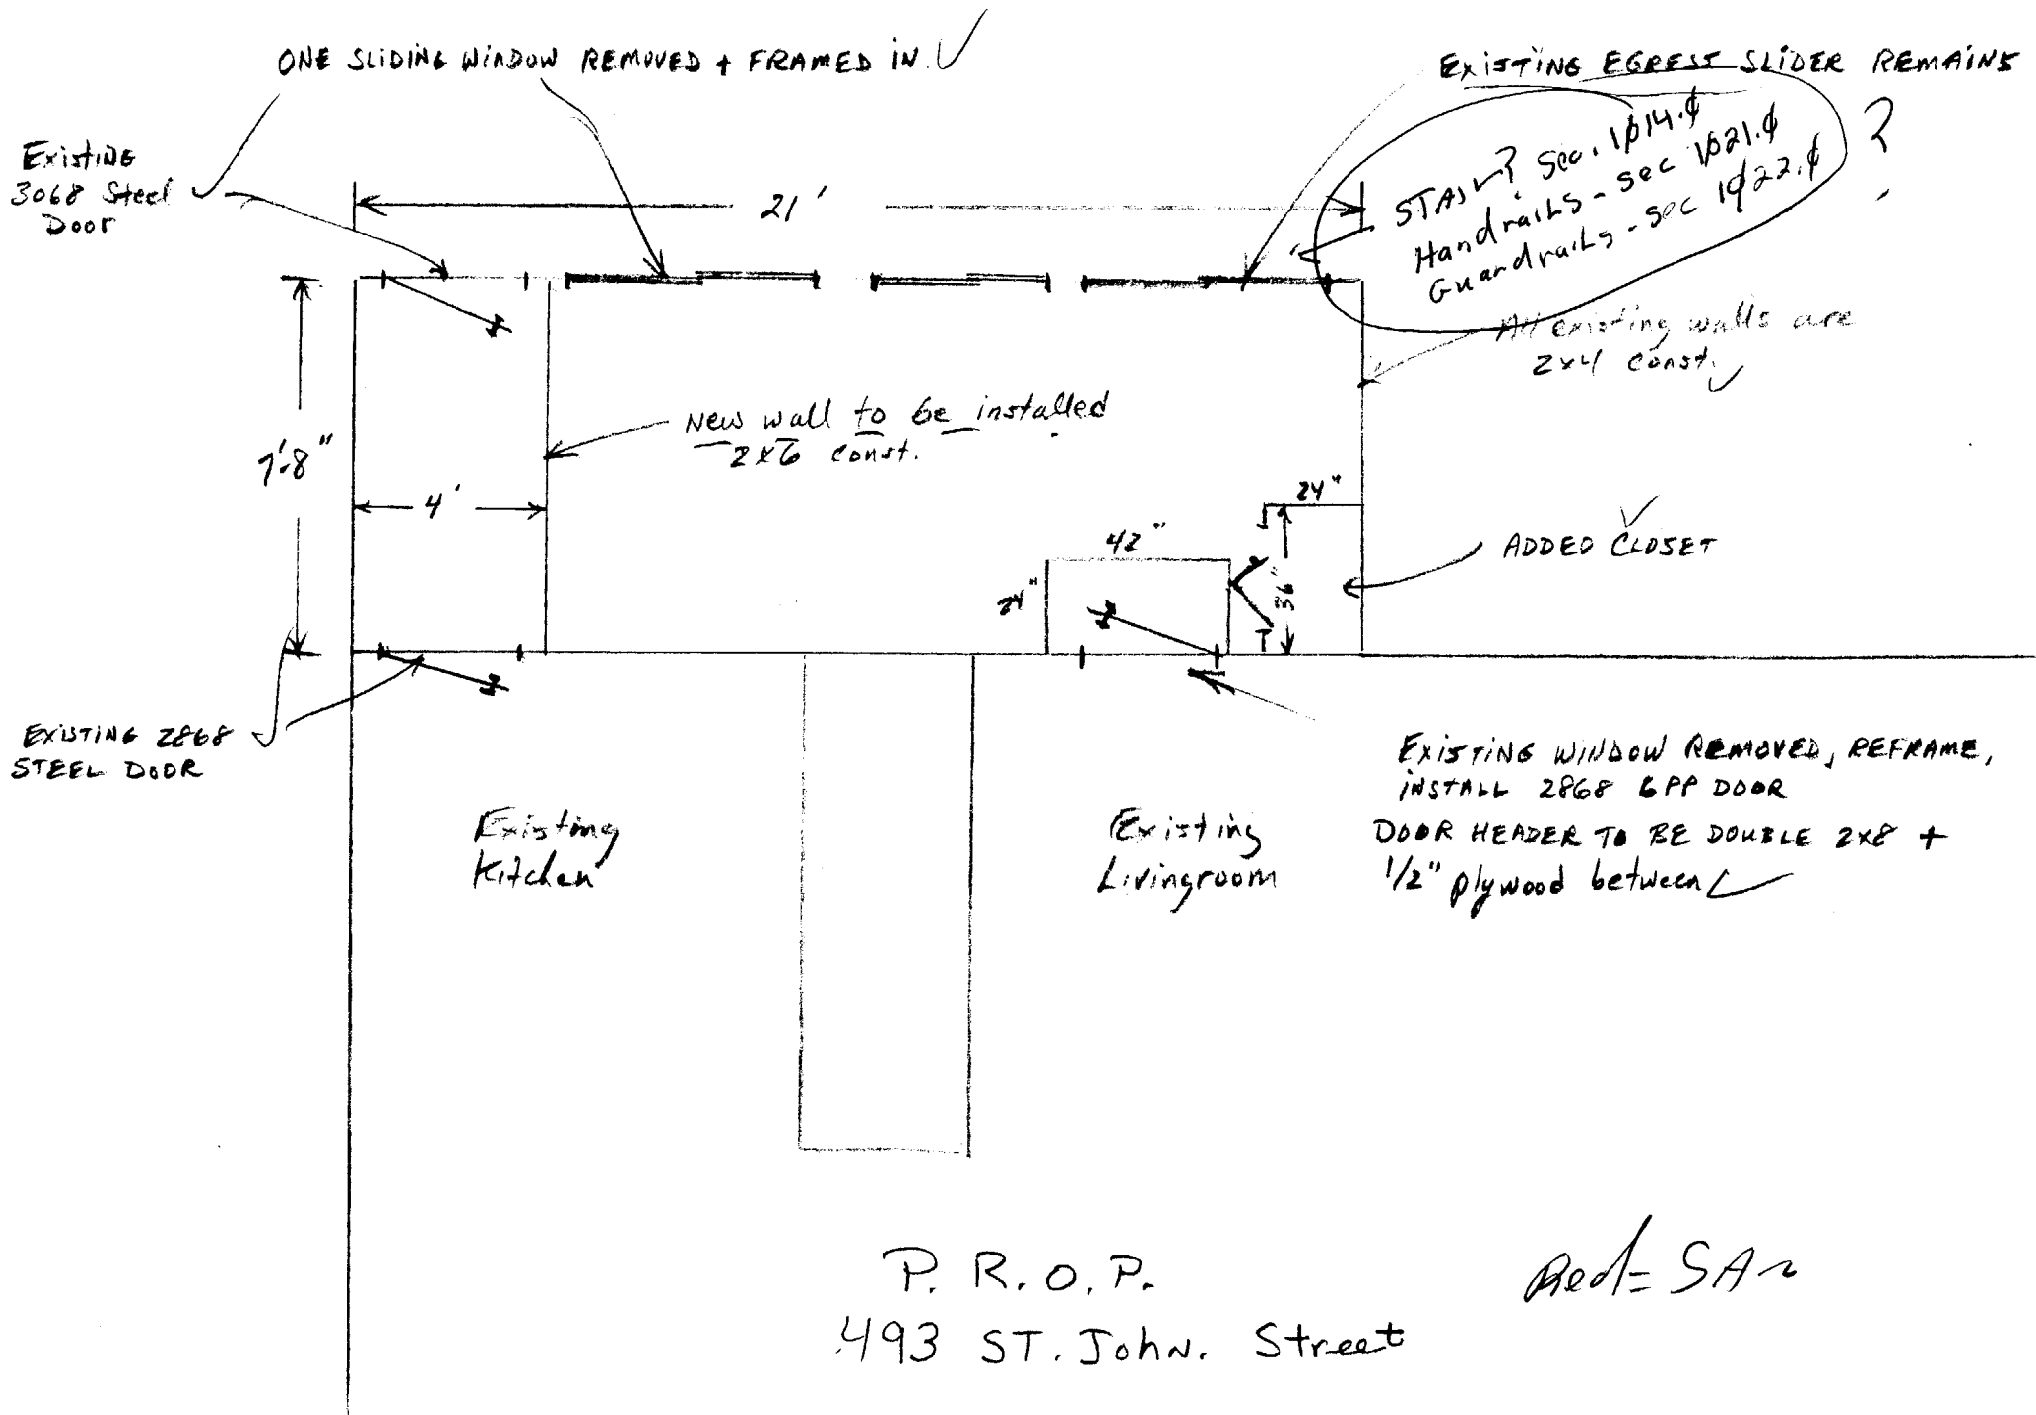 ONE SLIDING WINDOW REMOVED + FRAMED IN
EXISTING EGREST SLIDER REMAINS
STAIR? Sec. 1014.0
Handrails - sec 1021.0
Guardrails - sec 1022.0
?
Existing
3068 Steel
Door
21'
All existing walls are
2x4 const.
New wall to be installed
2x6 const.
7'-8"
4'
24"
42"
24"
36"
ADDED CLOSET
EXISTING 2868
STEEL DOOR
EXISTING WINDOW REMOVED, REFRAME,
INSTALL 2868 6PP DOOR
DOOR HEADER TO BE DOUBLE 2x8 +
1/2" plywood between
Existing
Kitchen
Existing
Livingroom
P.R.O.P.
493 ST. John. Street
Red =